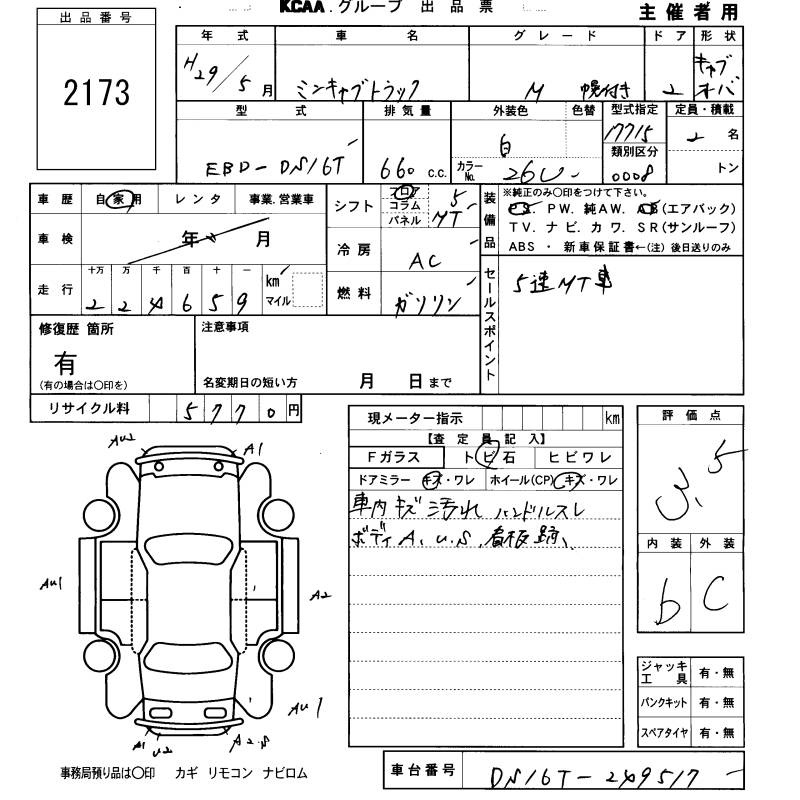 KCAA.グループ 出品票
主催者用
出品番号
2173
年式 車名 グレード ドア 形状
H29/5月 ミンキャブトラック M 幌付き 2 キャブオーバ
型式 排気量 外装色 色替 型式指定 定員・積載
EBD-DS16T 660 c.c. 白 17715 2名
カラーNo. 26U 類別区分 0008 トン
車歴 自家用 レンタ 事業.営業車
シフト フロア コラム パネル 5 MT
装備品
※純正のみ○印をつけて下さい。
PS. PW. 純AW. AB(エアバック)
TV. ナビ. カワ. SR(サンルーフ)
ABS ・ 新車保証書←(注) 後日送りのみ
車検 年 月
冷房 AC
走行 十万 万 千 百 十 一 km マイル
224659
燃料 ガソリン
セールスポイント
5速MT車
修復歴 箇所
有
(有の場合は○印を)
注意事項
名変期日の短い方 月 日まで
リサイクル料 5770円
現メーター指示 km
【査定員記入】
Fガラス トビ石 ヒビワレ
ドアミラー キズ・ワレ ホイール(CP) キズ・ワレ
車内キズ汚れ ハンドルスレ
ボディA、U、S、看板跡、
評価点
3.5
内装 外装
b C
AU2 A1
AU1 A2
AU1
A1 U2 A2.S
ジャッキ工具 有・無
パンクキット 有・無
スペアタイヤ 有・無
事務局預り品は○印 カギ リモコン ナビロム
車台番号 DS16T-249517